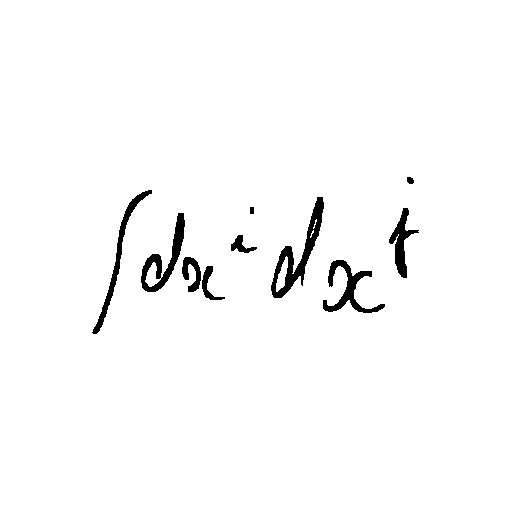 ∫dxⁱdxʲ